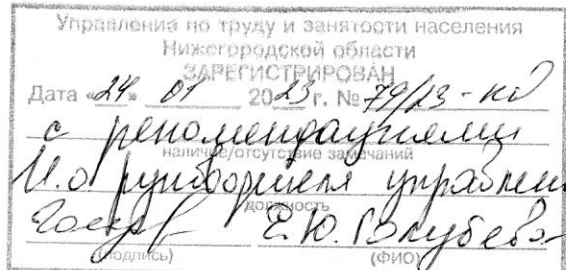 Управления по труду и занятости населения
Нижегородской области
ЗАРЕГИСТРИРОВАН
Дата «24» 01 2023 г. № 79/23-кд
с рекомендациями
наличие/отсутствие замечаний
И.о руководителя управлен
должность
Е.Ю. Голубева
(подпись) (ФИО)